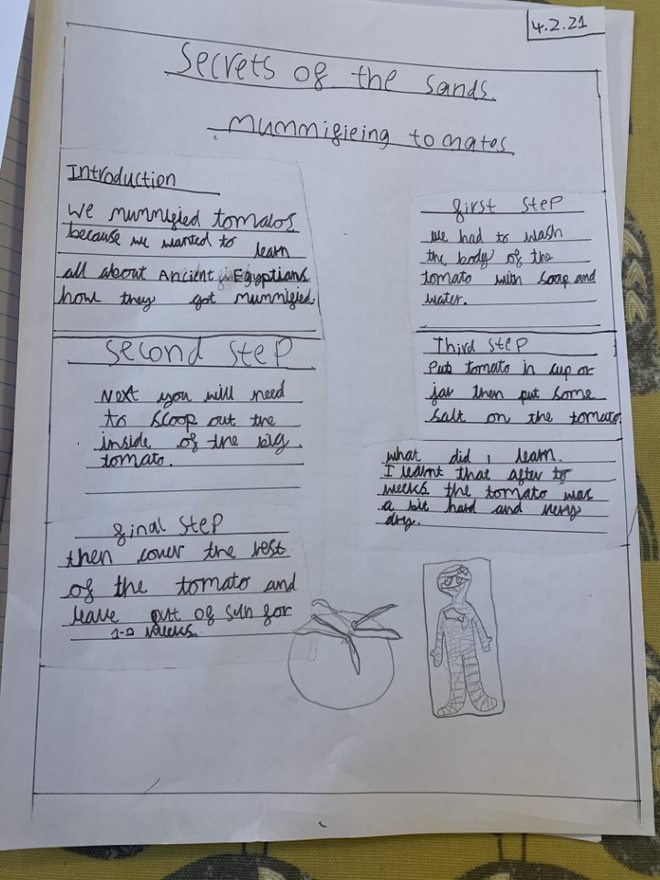 4.2.21
Secrets of the Sands
mummifieing tomatos
Introduction
We mummified tomatos
because we wanted to learn
all about Ancient Egyptians
how they got mummified.
first Step
we had to wash
the body of the
tomato with soap and
water.
Second Step
Next you will need
to scoop out the
inside of the big
tomato.
Third Step
Put tomato in cup or
jar then put some
salt on the tomato.
what did i learn.
I learnt that after to
weeks the tomato was
a bit hard and very
dry.
final Step
then cover the rest
of the tomato and
leave out of sun for
1-2 weeks.